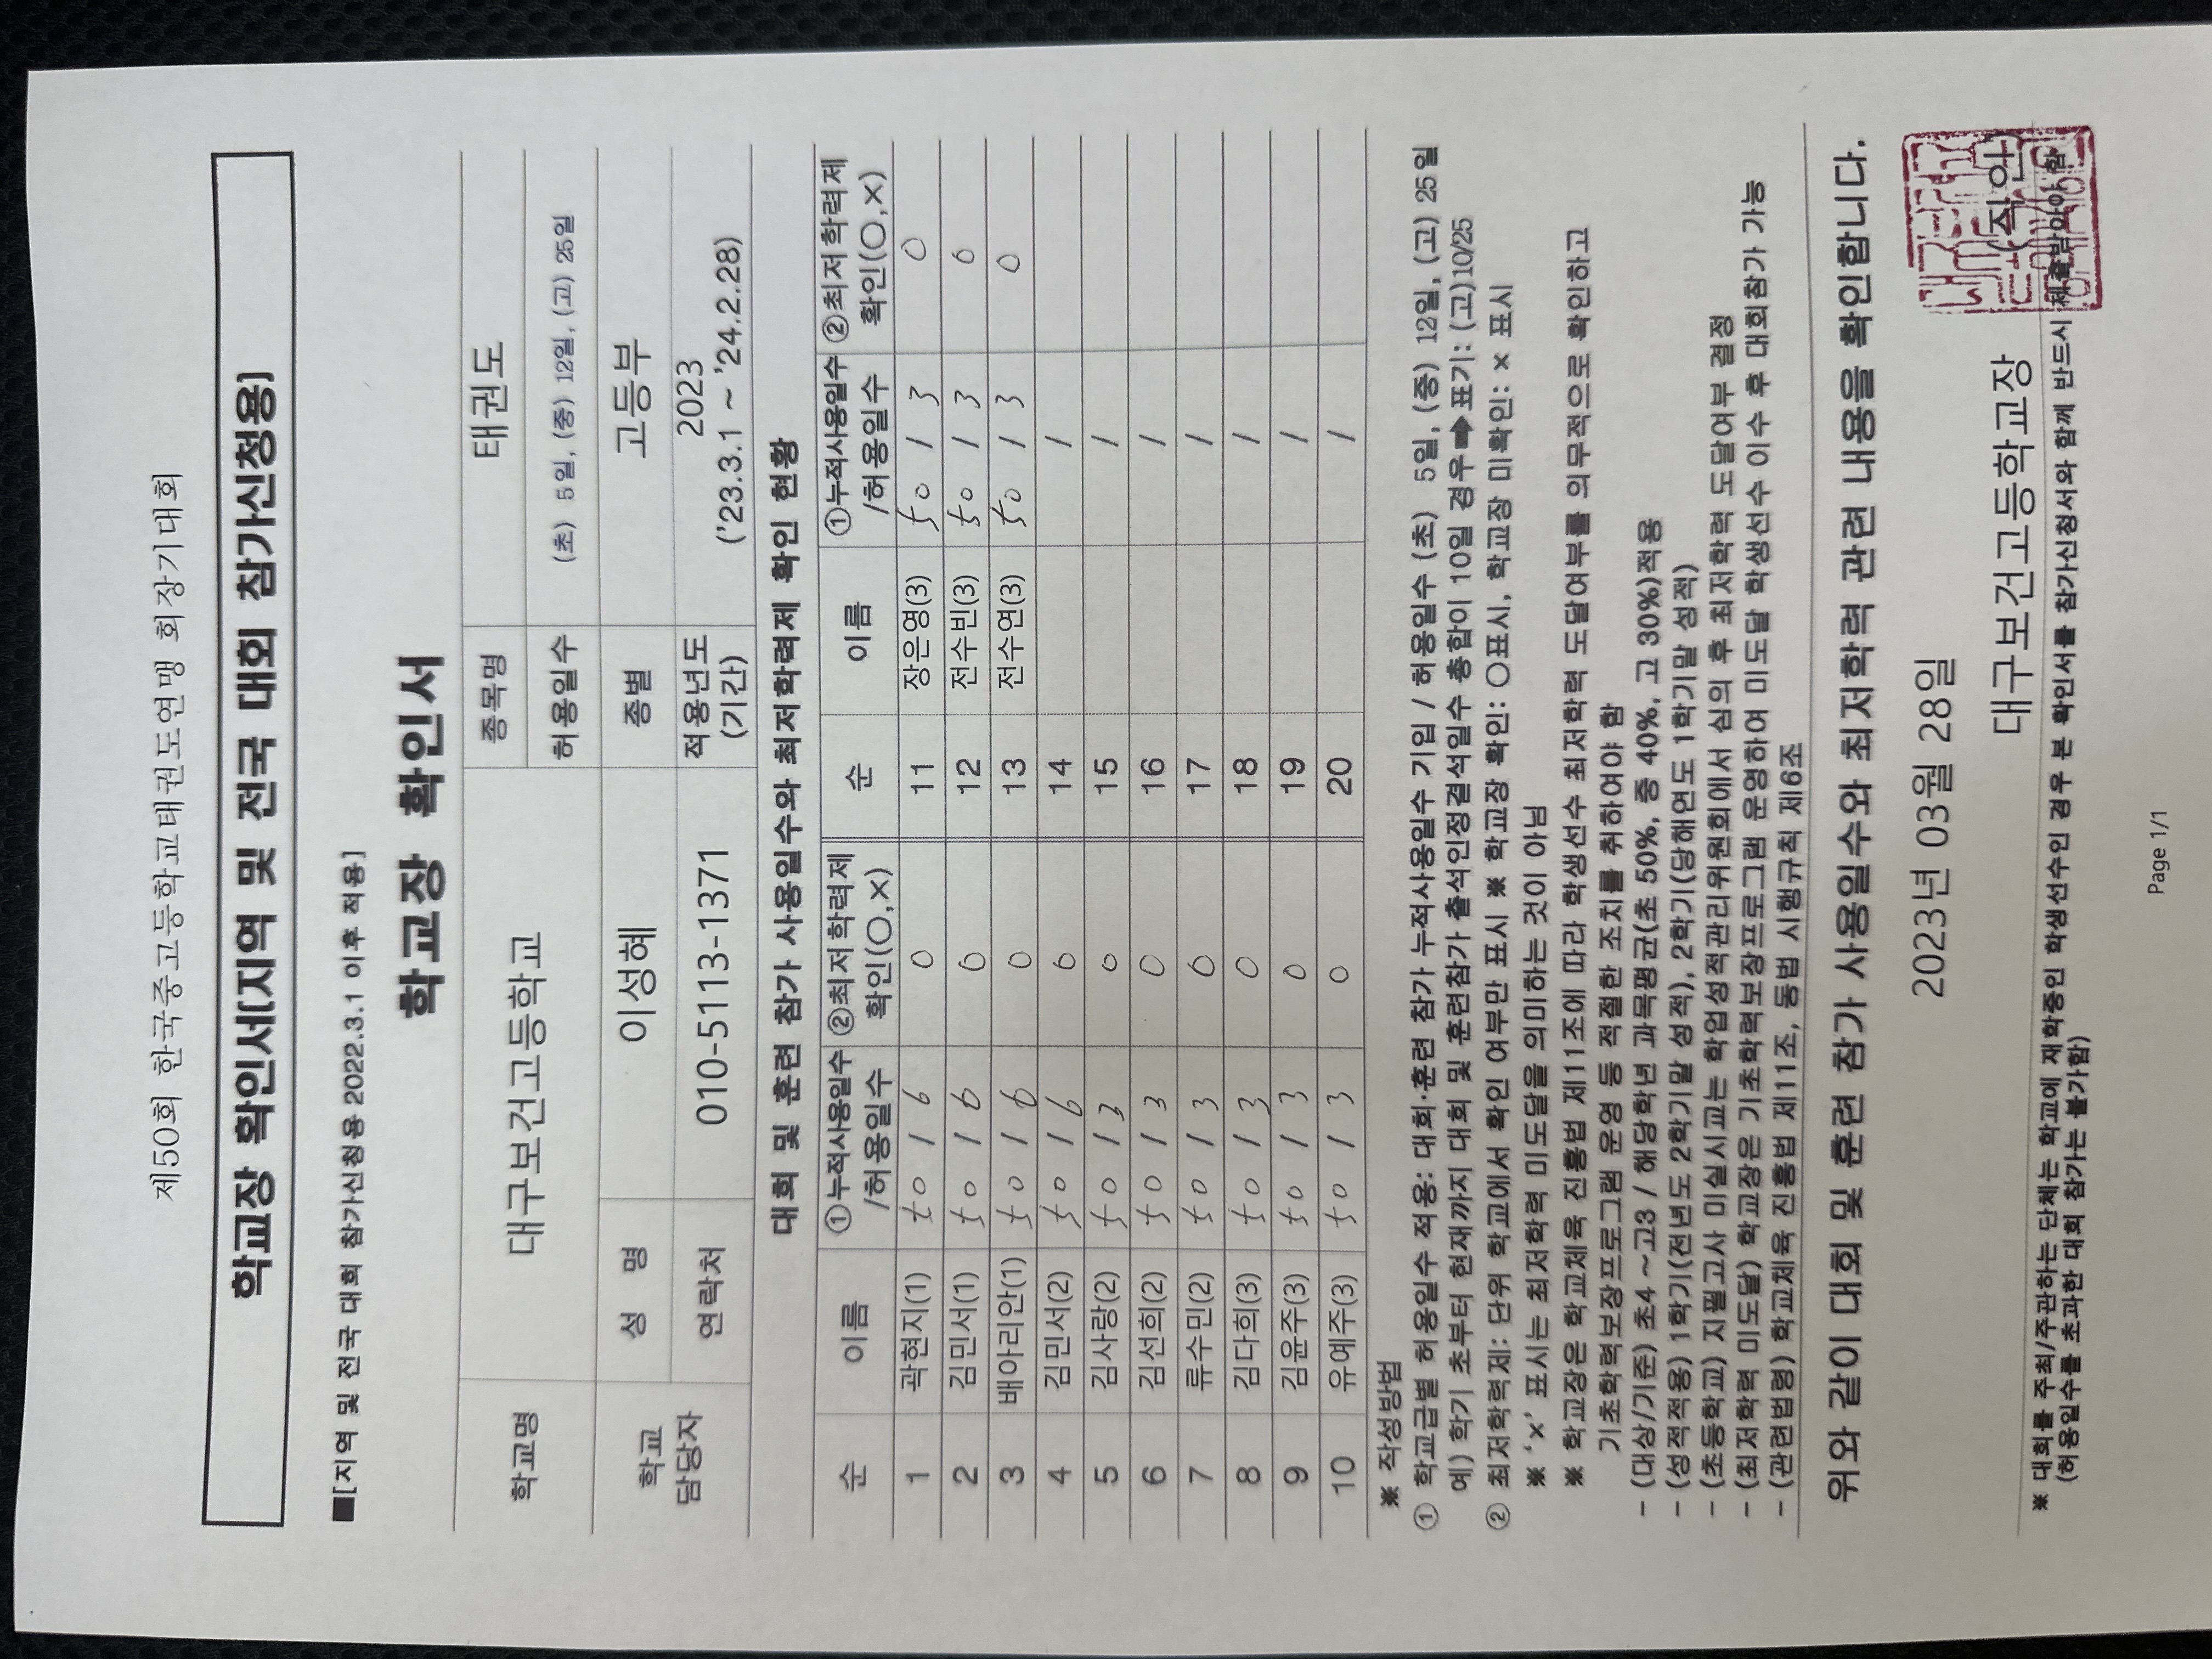 제50회 한국중고등학교태권도연맹 회장기대회
학교장 확인서[지역 및 전국 대회 참가신청용]
■[지역 및 전국 대회 참가신청용 2022.3.1 이후 적용]
학교장 확인서
학교명 대구보건고등학교 종목명 태권도
허용일수 (초) 5일, (중) 12일, (고) 25일
학교 담당자 성 명 이성혜 종별 고등부
연락처 010-5113-1371 적용년도 (기간) 2023 ('23.3.1 ~ '24.2.28)
대회 및 훈련 참가 사용일수와 최저학력제 확인 현황
순 이름 ①누적사용일수 /허용일수 ②최저학력제 확인(○,×) 순 이름 ①누적사용일수 /허용일수 ②최저학력제 확인(○,×)
1 곽현지(1) 50 / 6 ○ 11 장은영(3) 50 / 3 ○
2 김민서(1) 50 / 6 ○ 12 전수빈(3) 50 / 3 ○
3 배아리안(1) 50 / 6 ○ 13 전수연(3) 50 / 3 ○
4 김민서(2) 50 / 6 ○ 14 /
5 김사랑(2) 50 / 3 ○ 15 /
6 김선희(2) 50 / 3 ○ 16 /
7 류수민(2) 50 / 3 ○ 17 /
8 김다희(3) 50 / 3 ○ 18 /
9 김윤주(3) 50 / 3 ○ 19 /
10 유예주(3) 50 / 3 ○ 20 /
※ 작성방법
① 학교급별 허용일수 적용: 대회·훈련 참가 누적사용일수 기입 / 허용일수 (초) 5일, (중) 12일, (고) 25일
예) 학기 초부터 현재까지 대회 및 훈련참가 출석인정결석일수 총합이 10일 경우➡표기: (고)10/25
② 최저학력제: 단위 학교에서 확인 여부만 표시 ※ 학교장 확인: ○표시, 학교장 미확인: × 표시
※ ‘×’ 표시는 최저학력 미도달을 의미하는 것이 아님
※ 학교장은 학교체육 진흥법 제11조에 따라 학생선수 최저학력 도달여부를 의무적으로 확인하고
기초학력보장프로그램 운영 등 적절한 조치를 취하여야 함
- (대상/기준) 초4 ~고3 / 해당학년 과목평균(초 50%, 중 40%, 고 30%)적용
- (성적적용) 1학기(전년도 2학기말 성적), 2학기(당해연도 1학기말 성적)
- (초등학교) 지필고사 미실시교는 학업성적관리위원회에서 심의 후 최저학력 도달여부 결정
- (최저학력 미도달) 학교장은 기초학력보장프로그램 운영하여 미도달 학생선수 이수 후 대회참가 가능
- (관련법령) 학교체육 진흥법 제11조, 동법 시행규칙 제6조
위와 같이 대회 및 훈련 참가 사용일수와 최저학력 관련 내용을 확인합니다.
2023년 03월 28일
대구보건고등학교장 (직인)
※ 대회를 주최/주관하는 단체는 학교에 재학중인 학생선수인 경우 본 확인서를 참가신청서와 함께 반드시 제출받아야 함
(허용일수를 초과한 대회 참가는 불가함)
Page 1/1